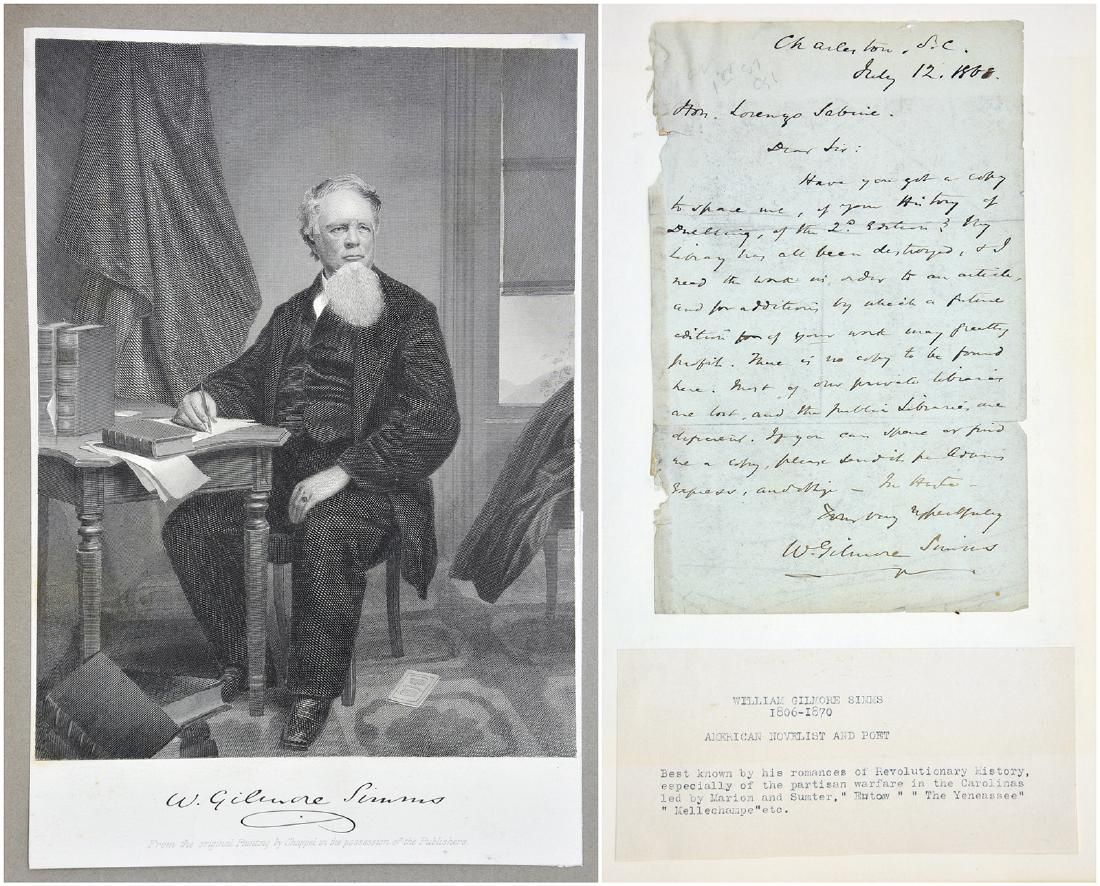 W. Gilmore Simms
From the original Painting by Chappel in the possession of the Publishers.
Charleston, S.C.
July 12. 186
Hon. Lorenzo Sabine.
Dear Sir:
Have you got a copy
to spare me, of your History of
Duelling, of the 2d. Edition? My
Library has all been destroyed, & I
need the work in order to an article,
and for additions by which a future
edition of your work may greatly
profit. There is no copy to be found
here. Most of our private libraries
are lost, and the public Libraries are
dispersed. If you can spare or find
me a copy, please send it per Adams
Express, and oblige — In Haste —
Yours very respectfully
W. Gilmore Simms
WILLIAM GILMORE SIMMS
1806-1870
AMERICAN NOVELIST AND POET
Best known by his romances of Revolutionary History,
especially of the partisan warfare in the Carolinas
led by Marion and Sumter," Eutow " " The Yeneassee"
" Mellechampe"etc.